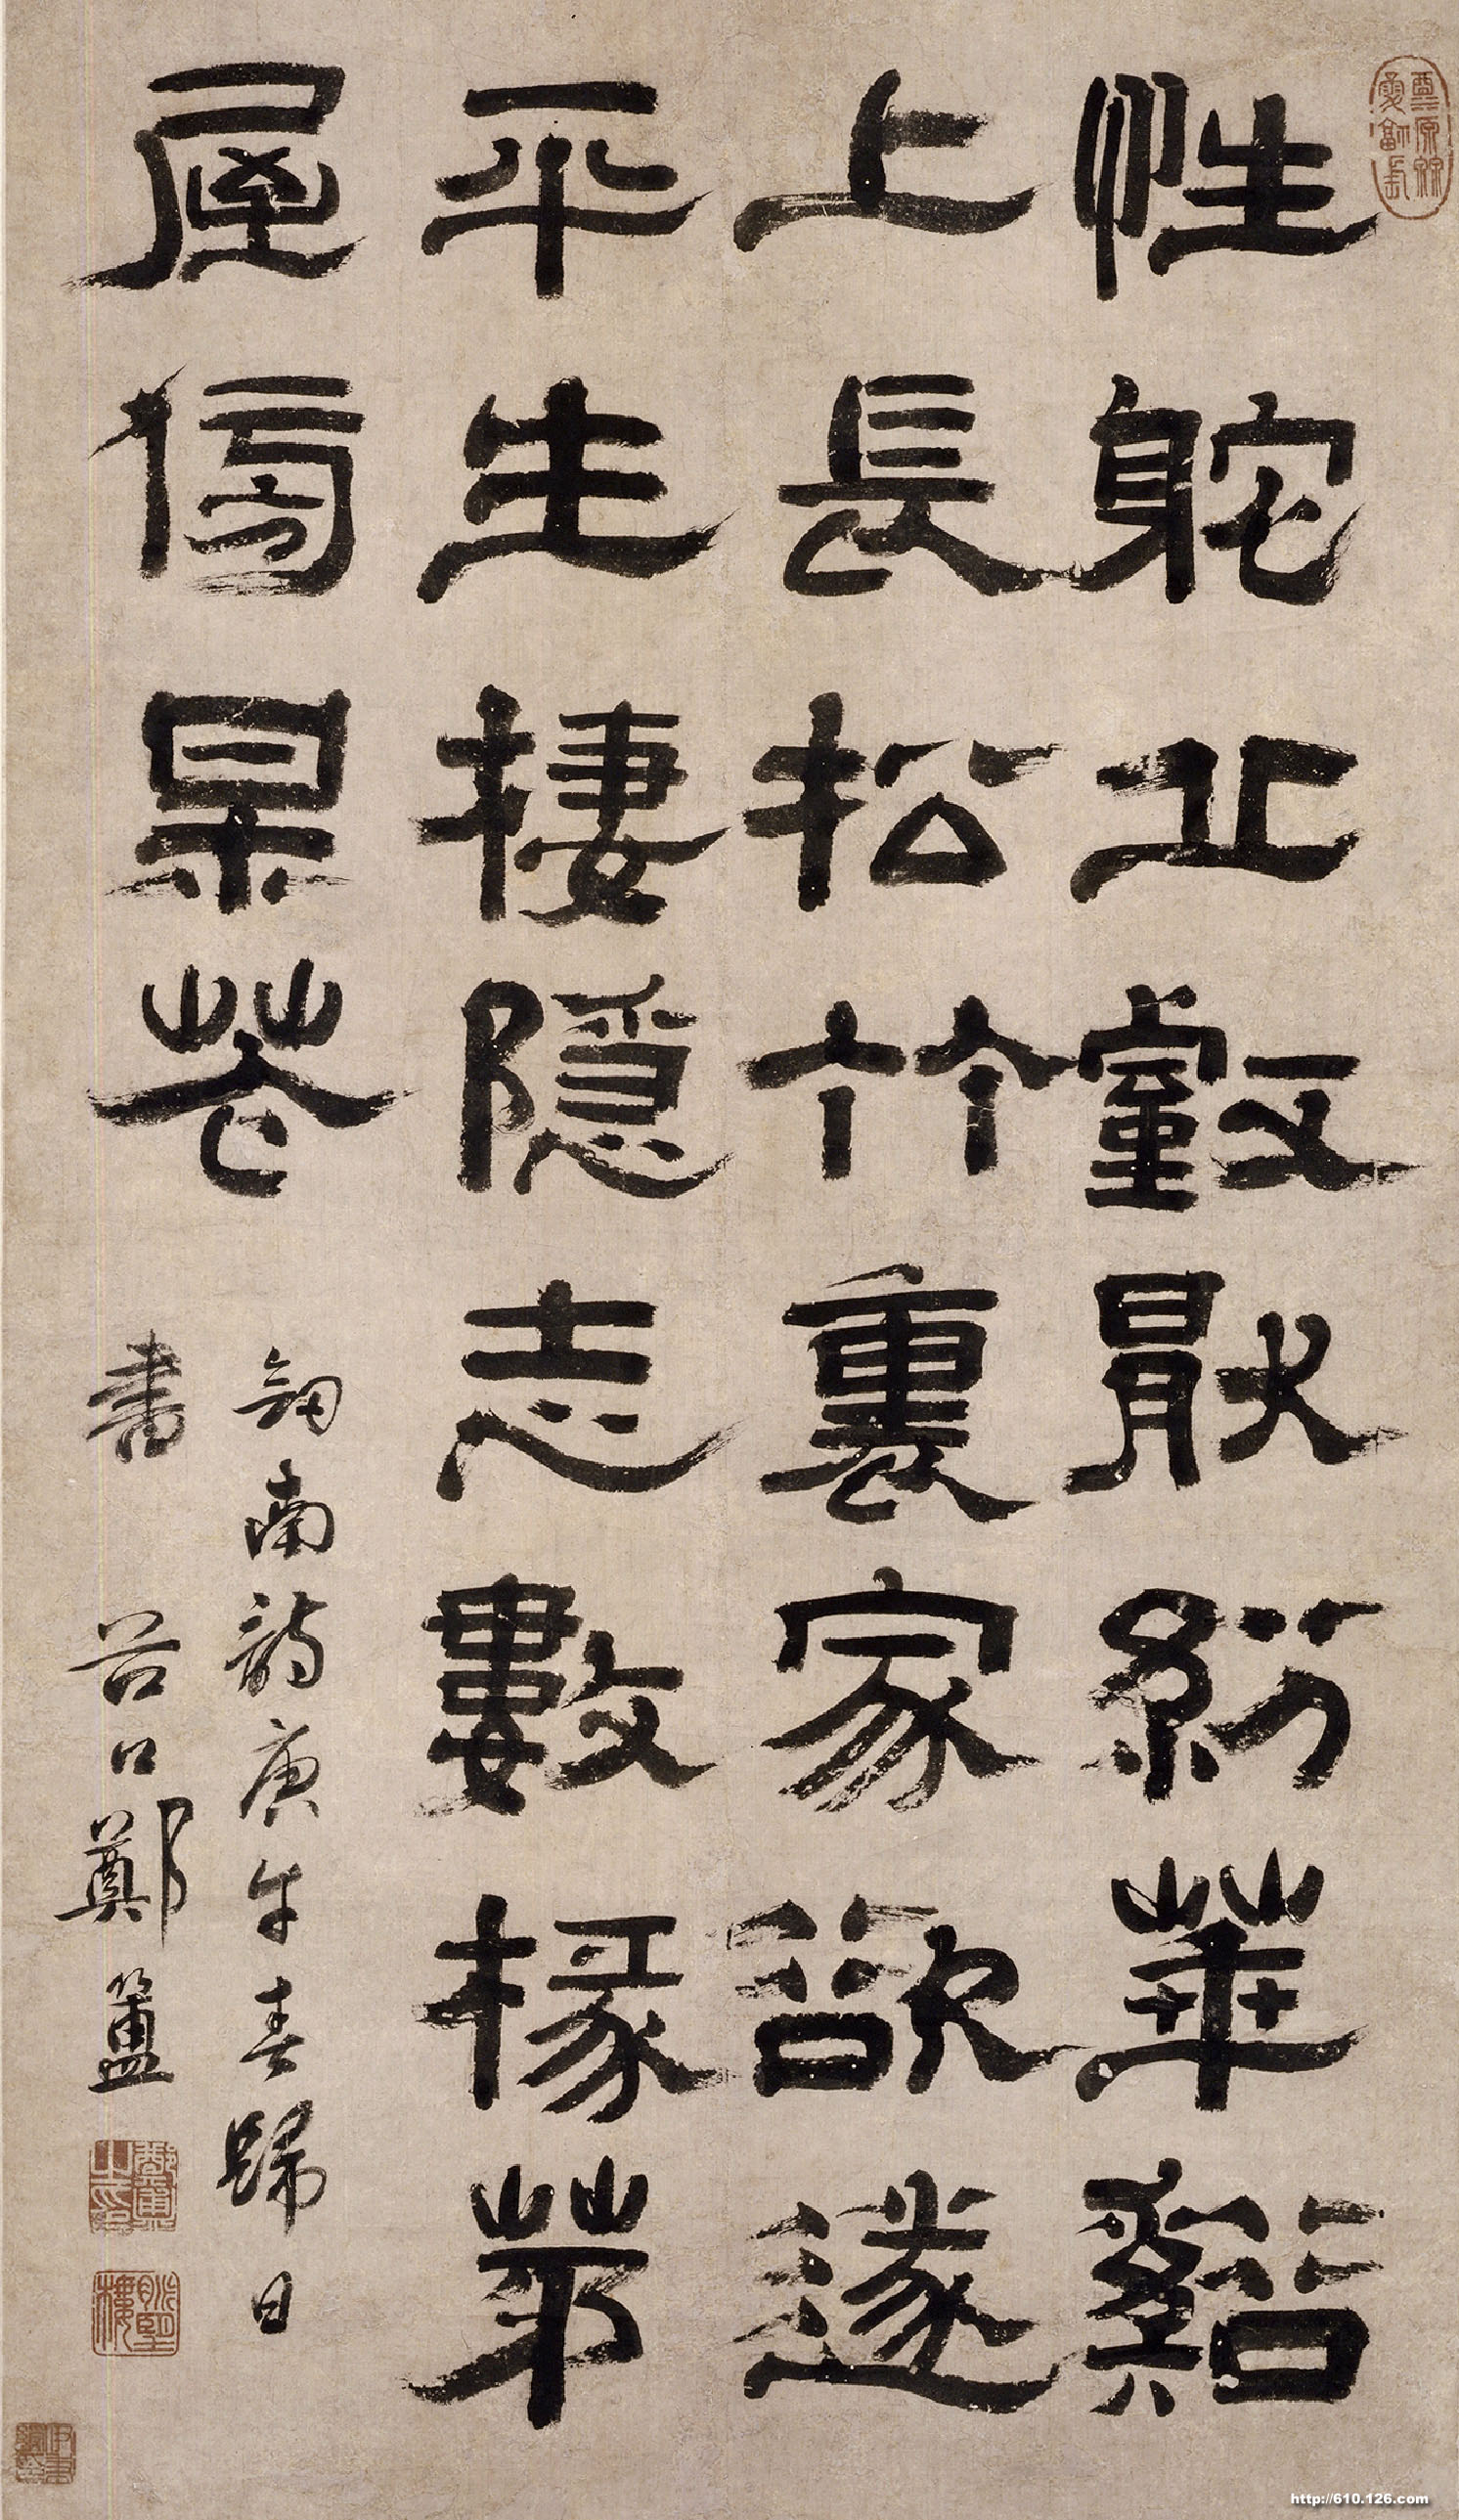 性躭丘壑猒紛華谿
上長松竹裏家欲遂
平生棲隱志數椽茅
屋傍某花
劒南詩庚午春歸日
書 谷口鄭簠
鄭簠之印
http://610.126.com